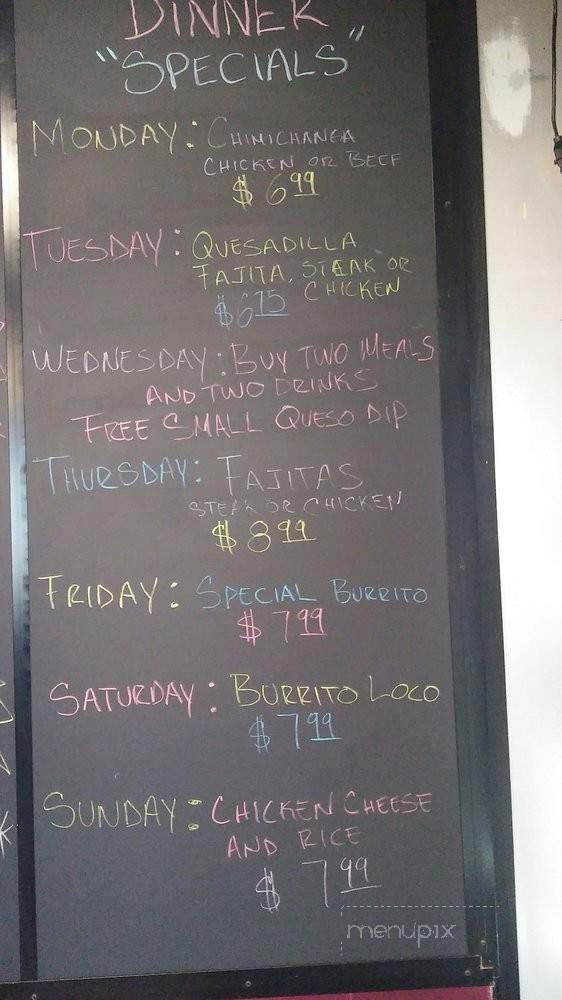 DINNER
"SPECIALS"
MONDAY: CHIMICHANGA
CHICKEN OR BEEF
$ 6.99
TUESDAY: QUESADILLA
FAJITA, STEAK OR
CHICKEN
$6.75
WEDNESDAY: BUY TWO MEALS
AND TWO DRINKS
FREE SMALL QUESO DIP
THURSDAY: FAJITAS
STEAK OR CHICKEN
$ 8 99
FRIDAY: SPECIAL BURRITO
$ 7 99
SATURDAY: BURRITO LOCO
$ 7 99
SUNDAY: CHICKEN CHEESE
AND RICE
$ 7 99
menupix